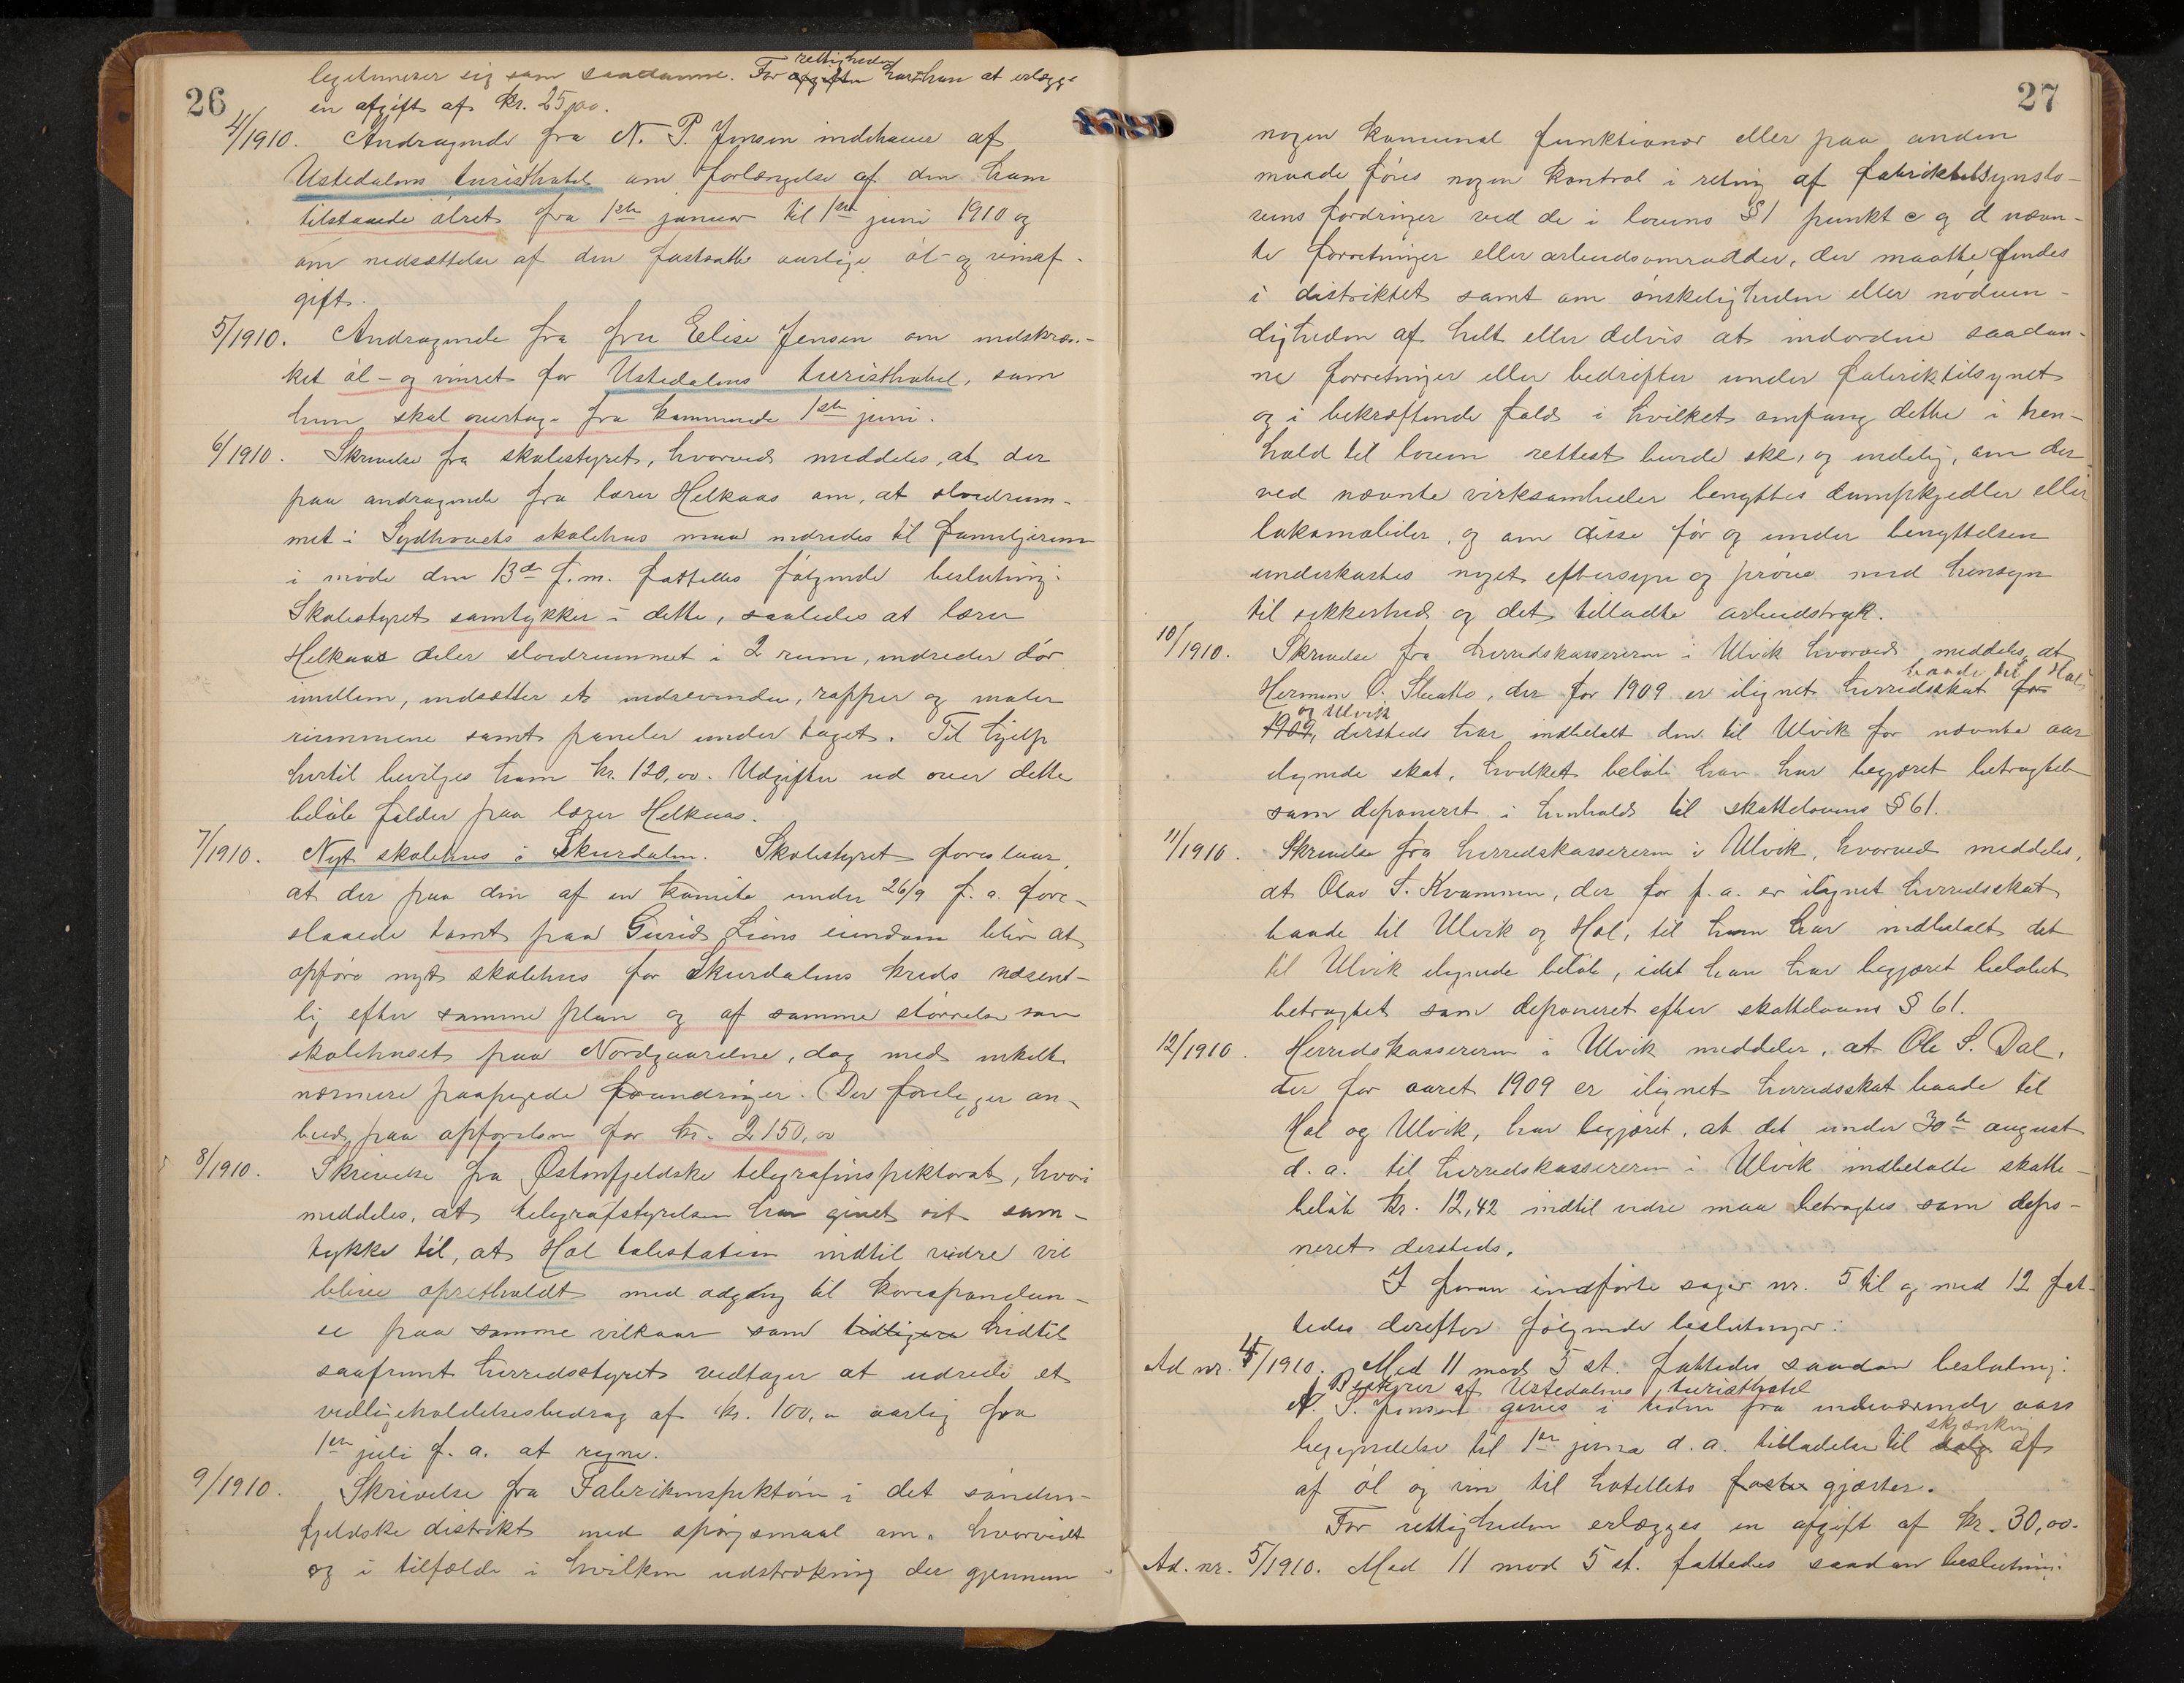 26
legitimerer sig som saadanne. For rettigheden har han at erlægge
en afgift af kr. 25,00.
4/1910. Andragende fra N. P. Jensen indehaver af
Ustedalens turisthotel om forlængelse af den ham
tilstaaede ølret fra 1ste januar til 1ste juni 1910 og
om nedsættelse af den fastsatte aarlige øl- og vinaf-
gift.
5/1910. Andragende fra fru Elise Jensen om indskræn-
ket øl- og vinret for Ustedalens turisthotel, som
hun skal overtage fra kommende 1ste juni.
6/1910. Skrivelse fra skolestyret, hvorved meddeles, at der
paa andragende fra lærer Helkaas om, at sløidrum-
met i Sydhovets skolehus maa indredes til familjerum
i møde den 13de f.m. fattedes følgende beslutning:
Skolestyret samtykker i dette, saaledes at lærer
Helkaas deler sløidrummet i 2 rum, indreder dør
imellem, indsætter et indrevindu, rapper og maler
rummene samt paneler under taget. Til hjelp
hertil bevilges ham kr. 120,00. Udgifter ud over dette
beløb falder paa lærer Helkaas.
7/1910. Nyt skolehus i Skurdalen. Skolestyret foreslaar,
at der paa den af en komite under 26/9 f. a. fore-
slaaede tomt paa Gurid Liens eiendom blir at
opføre nyt skolehus for Skurdalens kreds væsent-
lig efter samme plan og af samme størrelse som
skolehuset paa Nordgaardene, dog med enkelte
nærmere paapegede forandringer. (Der foreligger an-
bud paa opførelsen for kr. 2150,00
8/1910. Skrivelse fra Østenfjeldske telegrafinspektorat, hvori
meddeles, at telegrafstyrelsen har givet sit sam-
tykke til, at Hol talestation indtil vidre vil
blive opretholdt med adgang til korrespondan-
se paa samme vilkaar som tidligere hidtil
saafremt herredsstyret vedtager at udrede et
vedligeholdelsesbedrag af kr. 100,00 aarlig fra
1ste juli f. a. at regne.
9/1910. Skrivelse fra Fabrikinspektøren i det sønden-
fjeldske distrikt med spørgsmaal om, hvorvidt
og i tilfælde i hvilken udstrækning der gjennem
27
nogen komunal funktionær eller paa anden
maade føres nogen kontrol i retning af fabriktilsynslo-
vens fordringer ved de i lovens §1 punkt c og d nævn-
te forretninger eller arbeidsomraader, der maatte findes
i distriktet samt om ønskeligheden eller nødven-
digheden af helt eller delvis at indordne saadan-
ne forretninger eller bedrifter under fabriktilsynet
og i bekræftende fald i hvilket omfang dette i hen-
hold til loven rettest burde ske, og endelig, om der
ved nævnte virksomheder benyttes dampkjedler eller
lokomobiler, og om disse før og under benyttelsen
underkastes noget eftersyn og prøve med hensyn
til sikkerhed og det tilladte arbeidstryk.
10/1910. Skrivelse fra herredskassereren i Ulvik hvorved meddeles, at
Herman O. Sleatto, der for 1909 er ilignet herredsskat for baade til Hol
og Ulvik
1909, dersteds har indbetalt den til Ulvik for nævnte aar
ilignede skat, hvilket beløb han har begjæret betragtet
som deponeret i henhold til skattelovens §61.
11/1910. Skrivelse fra herredskassereren i Ulvik, hvorved meddeles,
at Olav S. Kvammen, der for f.a. er ilignet herredsskat
baade til Ulvik og Hol, til ham har indbetalt det
til Ulvik ilignede beløb, idet han har begjæret beløbet
betragtet som deponeret efter skattelovens § 61.
12/1910. Herredskassereren i Ulvik meddeler, at Ole S. Dal,
der for aaret 1909 er ilignet herredsskat baade til
Hol og Ulvik, har begjæret, at det under 30te august
d.a. til herredskassereren i Ulvik indbetalte skatte-
beløb kr. 12,42 indtil vidre maa betragtes som depo-
neret dersteds.
I foran indførte sager nr. 5 til og med 12 fat-
tedes derefter følgende beslutninger:
Ad nr. 4/1910. Med 11 mod 5 st. fattedes saadan beslutning:
Bestyrer af Ustedalens turisthotel
N. P. Jensen gives i tiden fra indeværende aars
begyndelse til 1ste juni d.a. tilladelse til salg skjænkning af
af øl og vin til hotellets faste gjæster.
For rettigheden erlægges en afgift af kr. 30,00.
Ad. nr. 5/1910. Med 11 mod 5 st. fattedes saadan beslutning: